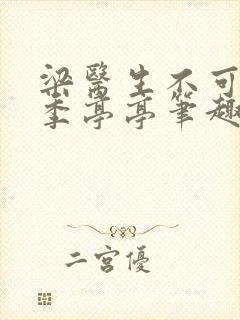 梁醫生不可
季亭亭筆趣
二宮優